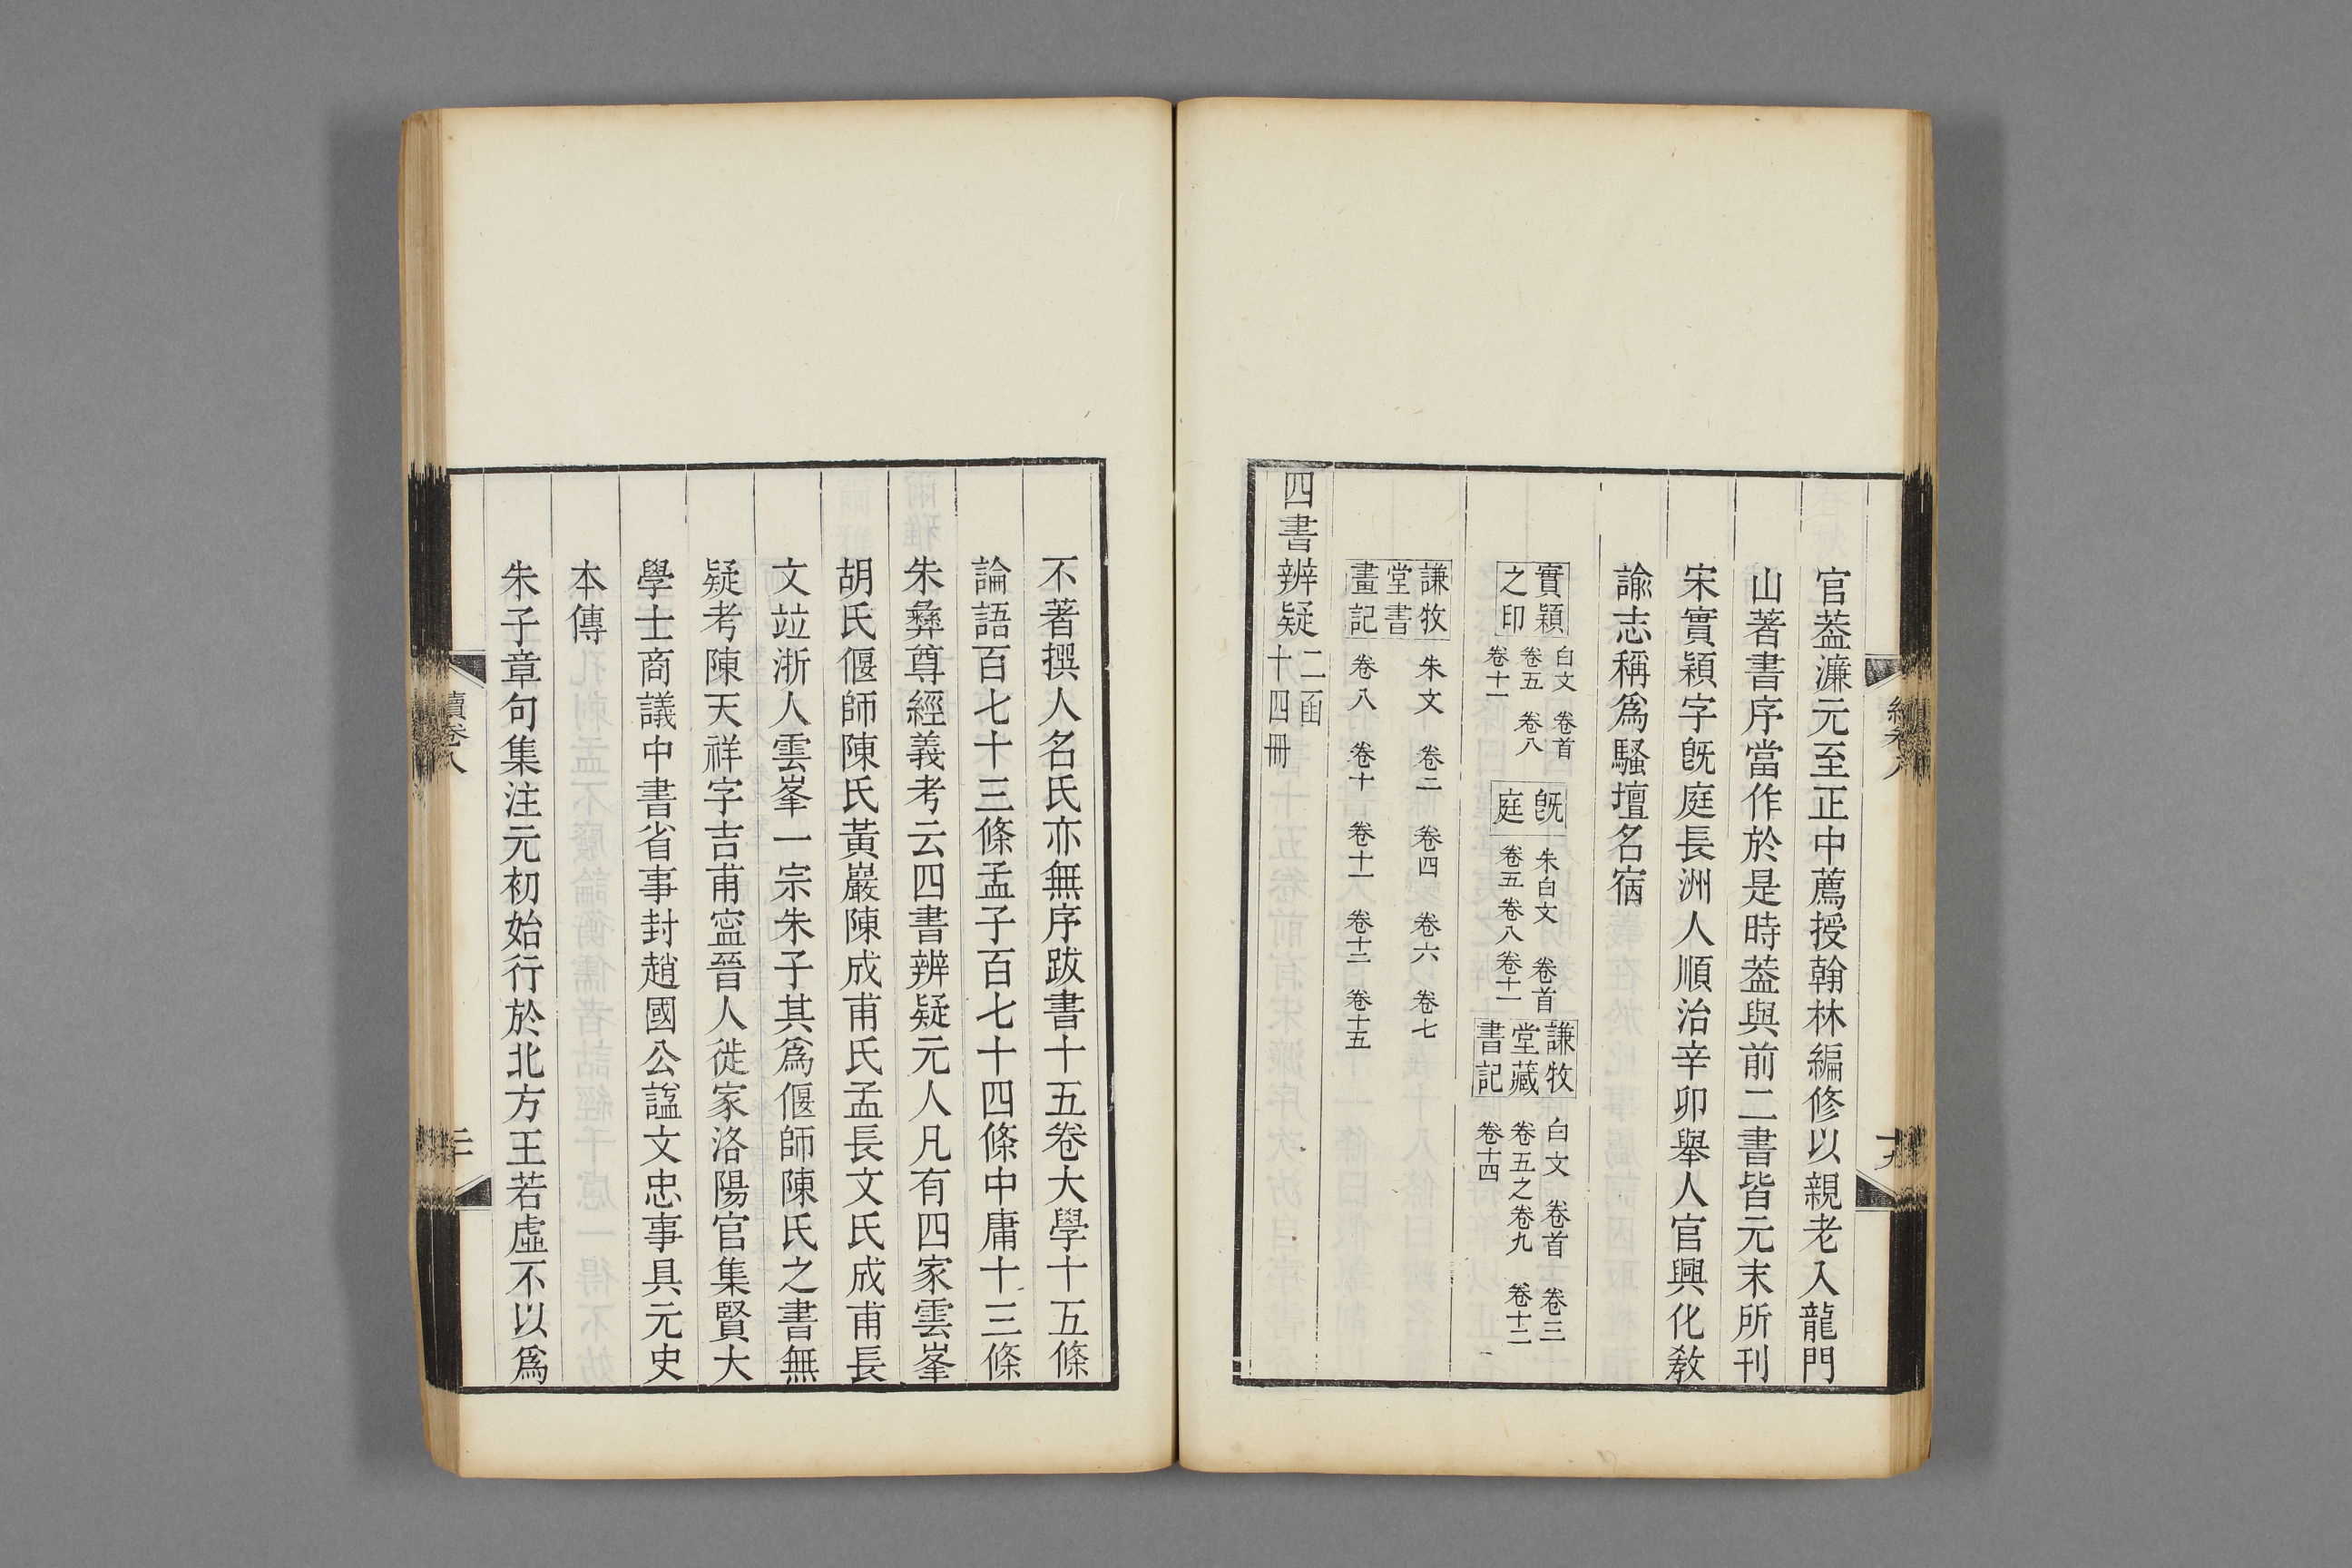 官葢濂元至正中薦授翰林編修以親老入龍門
山著書序當作於是時葢與前二書皆元末所刊
宋實穎字旣庭長洲人順治辛卯舉人官興化敎
諭志稱爲騷壇名宿
實穎之印 白文 卷首 卷五 卷八 卷十一 旣庭 朱白文 卷首 卷五 卷八 卷十一 謙牧堂藏書記 白文 卷首 卷三 卷五之卷九 卷十二 卷十四
謙牧堂書畫記 朱文 卷二 卷四 卷六 卷七 卷八 卷十 卷十一 卷十二 卷十五
四書辨疑 二函 十四冊
續卷八
十九
不著撰人名氏亦無序跋書十五卷大學十五條
論語百七十三條孟子百七十四條中庸十三條
朱彝尊經義考云四書辨疑元人凡有四家雲峯
胡氏偃師陳氏黃巖陳成甫氏孟長文氏成甫長
文竝浙人雲峯一宗朱子其爲偃師陳氏之書無
疑考陳天祥字吉甫寍晉人徙家洛陽官集賢大
學士商議中書省事封趙國公諡文忠事具元史
本傳
朱子章句集注元初始行於北方王若虛不以爲
續卷八
二十